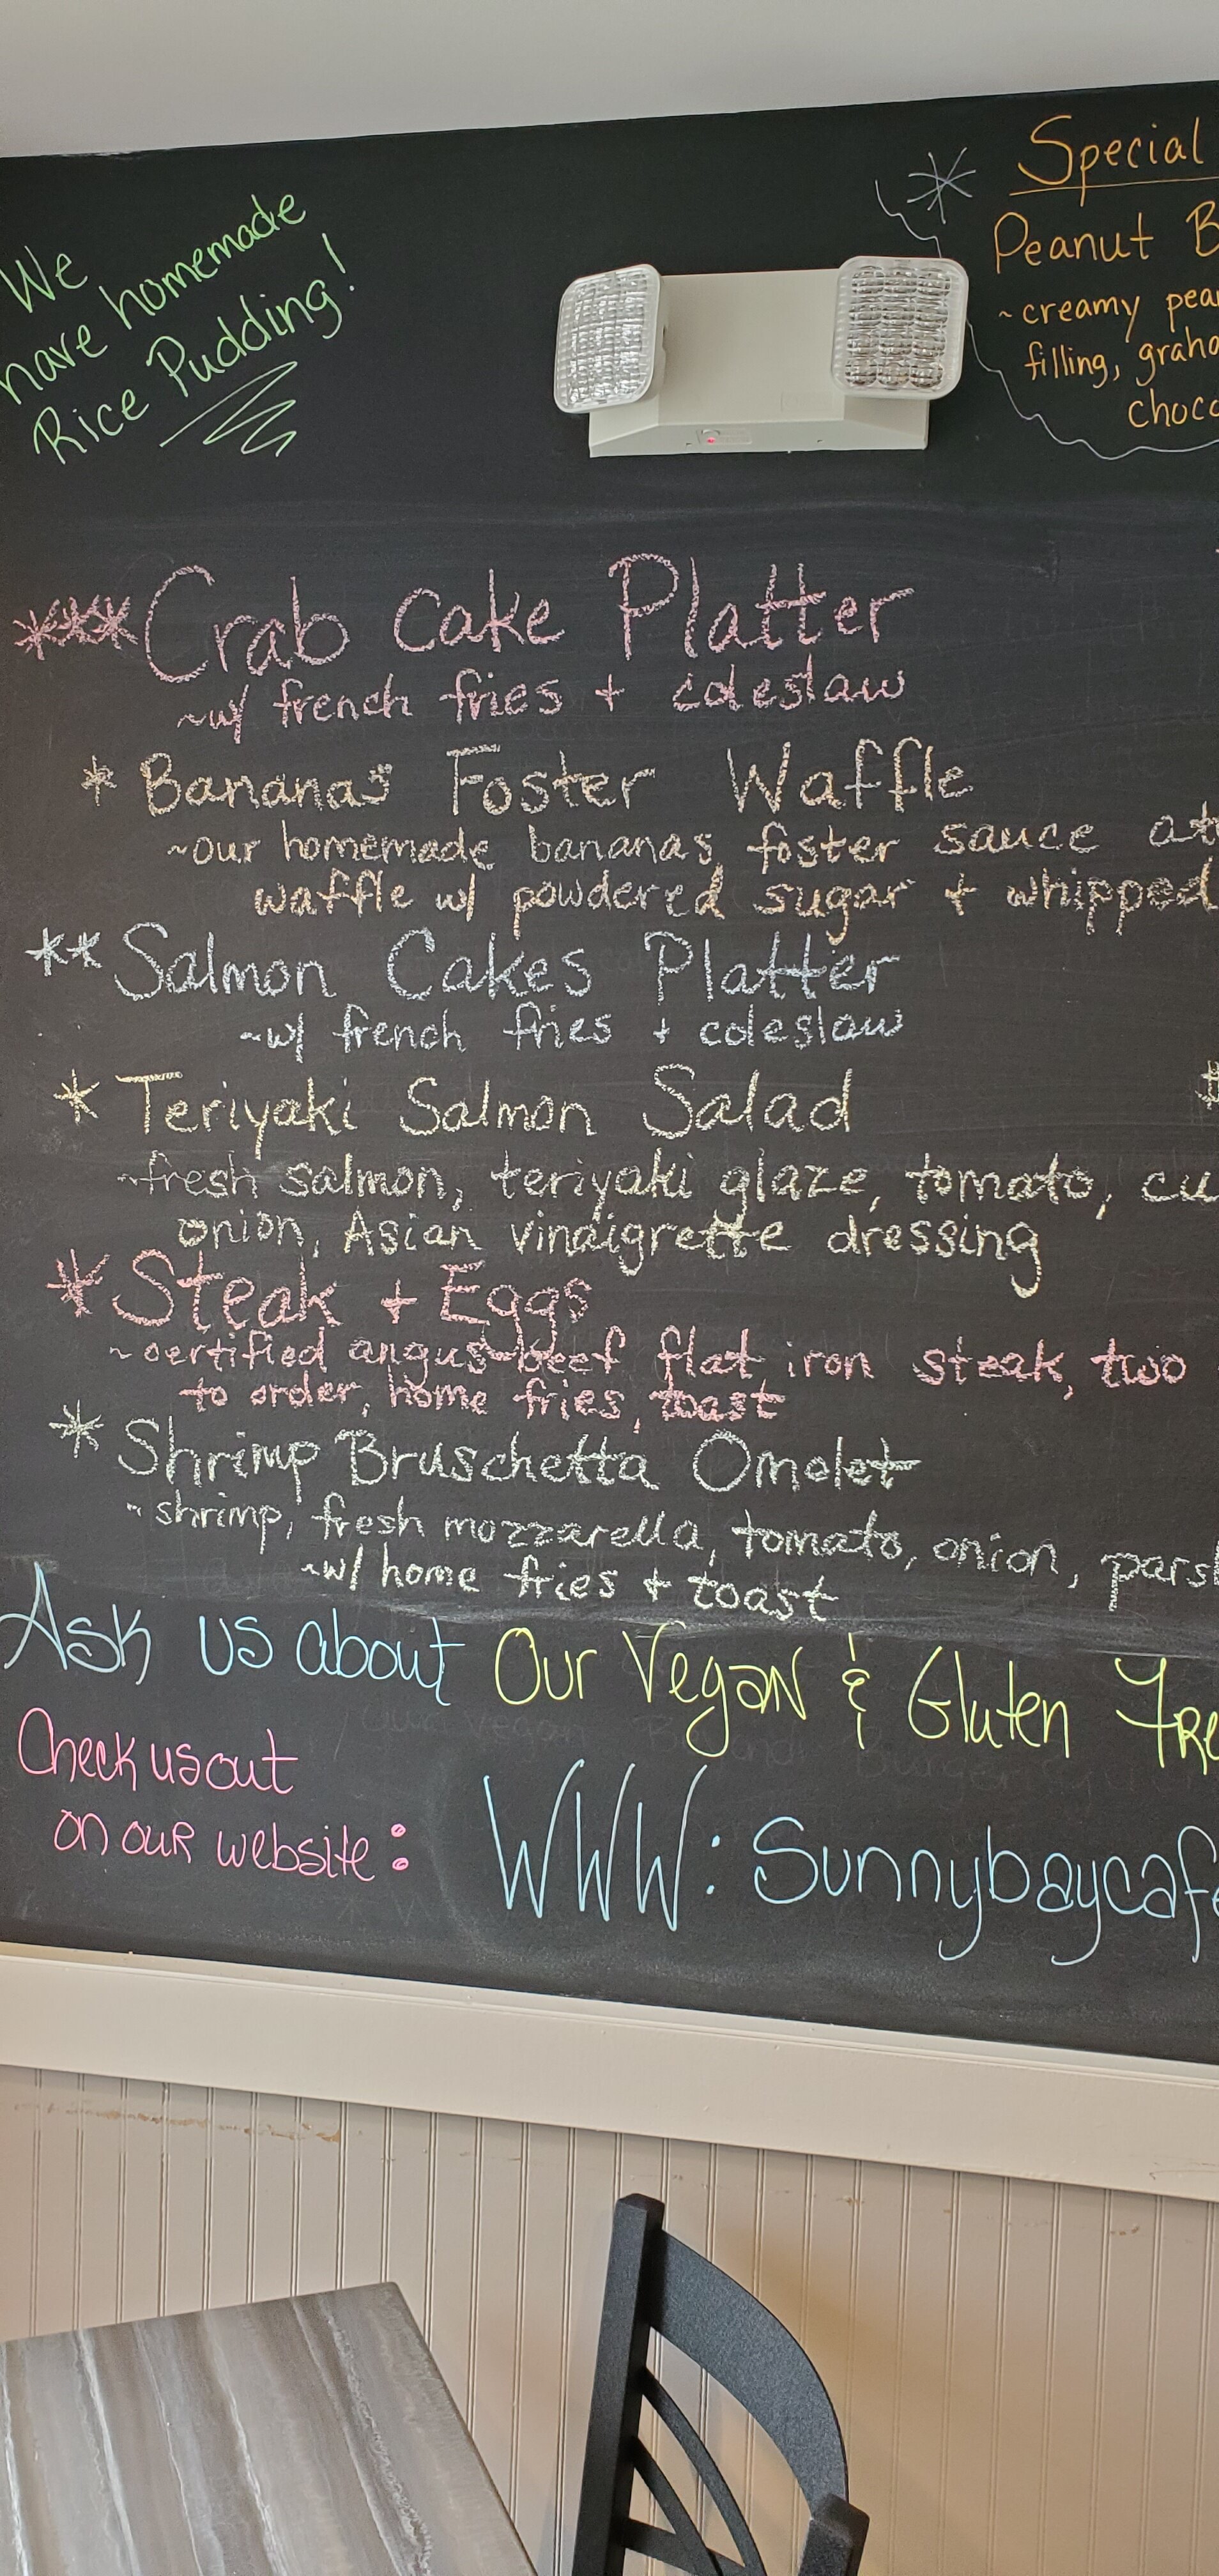 We
have homemade
Rice Pudding!
Special
Peanut B
~creamy pea
filling, graha
choco
***Crab Cake Platter
~w/ french fries + coleslaw
* Bananas Foster Waffle
~our homemade bananas foster sauce at
waffle w/ powdered sugar + whipped
** Salmon Cakes Platter
~w/ french fries + coleslaw
* Teriyaki Salmon Salad
$
~fresh salmon, teriyaki glaze, tomato, cu
onion, Asian vinaigrette dressing
* Steak + Eggs
~certified angus beef flat iron steak, two
to order, home fries, toast
* Shrimp Bruschetta Omelet
~shrimp, fresh mozzarella, tomato, onion, parsl
~w/ home fries + toast
Ask us about Our Vegan & Gluten Fre
Check us out
on our website:
WWW: Sunnybaycafe